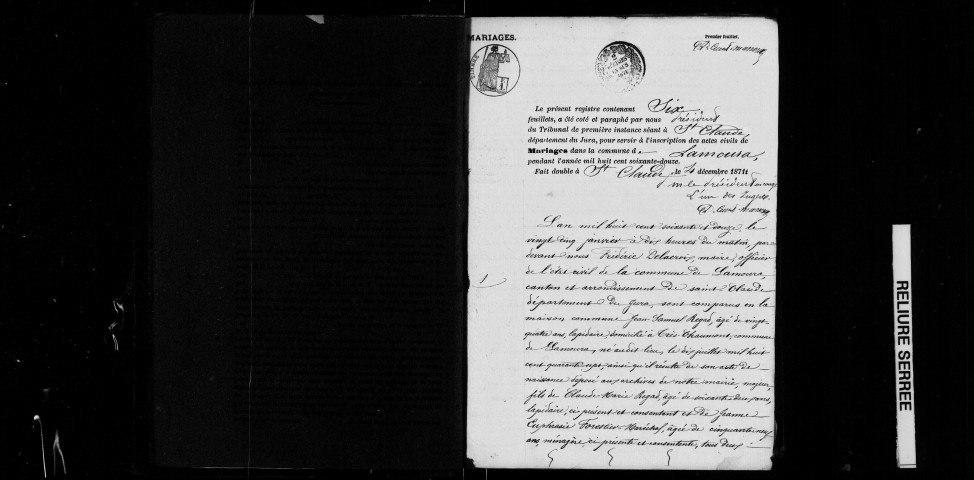 MARIAGES.
Premier feuillet.
Le présent registre contenant Six
feuillets, a été coté et paraphé par nous président
du Tribunal de première instance séant à St Claude,
département du Jura, pour servir à l'inscription des actes civils de
Mariages dans la commune de Lamoura,
pendant l'année mil huit cent soixante-douze.
Fait double à St Claude, le 4 décembre 1871
p m le président
L'un des Juges
L'an mil huit cent soixante et douze, le
vingt cinq janvier à dix heures du matin, par
devant nous Frédéric Delacroix, maire, officier
de l'état civil de la commune de Lamoura,
canton et arrondissement de saint Claude
département du Jura, sont comparus en la
1
maison commune Jean Samuel Regad, âgé de vingt-
quatre ans, lapidaire, domicilié à Très Chaumont, commune
de Lamoura, né audit lieu, le dix juillet mil huit
cent quarante sept, ainsi qu'il résulte de son acte de
naissance déposé aux archives de notre mairie, majeur,
fils de Claude Marie Regad, âgé de soixante deux ans,
lapidaire, ci présent et consentant et de Jeanne
Euphrasie Forestier Maréchal, âgée de cinquante neuf
ans, ménagère, ci présente et consentante, tous deux
RELIURE SERREE